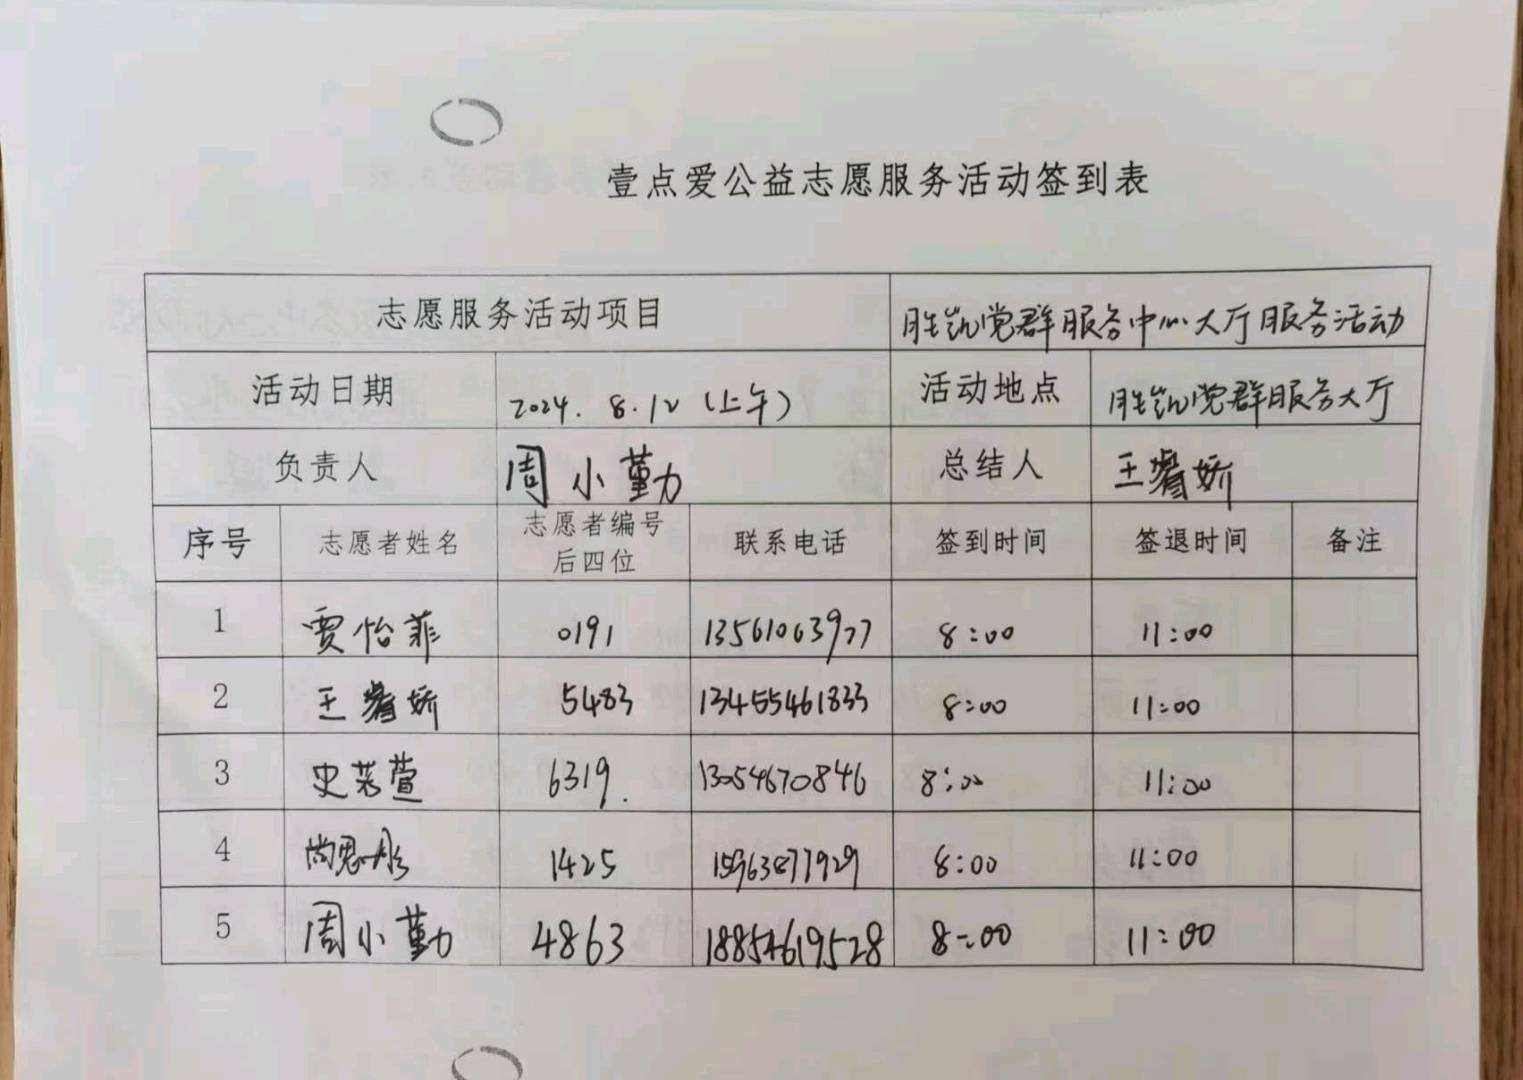 壹点爱公益志愿服务活动签到表
志愿服务活动项目 胜凯党群服务中心大厅服务活动
活动日期 2024.8.12(上午) 活动地点 胜凯党群服务大厅
负责人 周小勤 总结人 王睿娇
序号 志愿者姓名 志愿者编号后四位 联系电话 签到时间 签退时间 备注
1 贾怡菲 0191 13561063977 8:00 11:00
2 王睿娇 5483 13455461833 8:00 11:00
3 史若萱 6319. 13054670846 8:00 11:00
4 尚思彤 1425 15963877929 8:00 11:00
5 周小勤 4863 18854619528 8:00 11:00